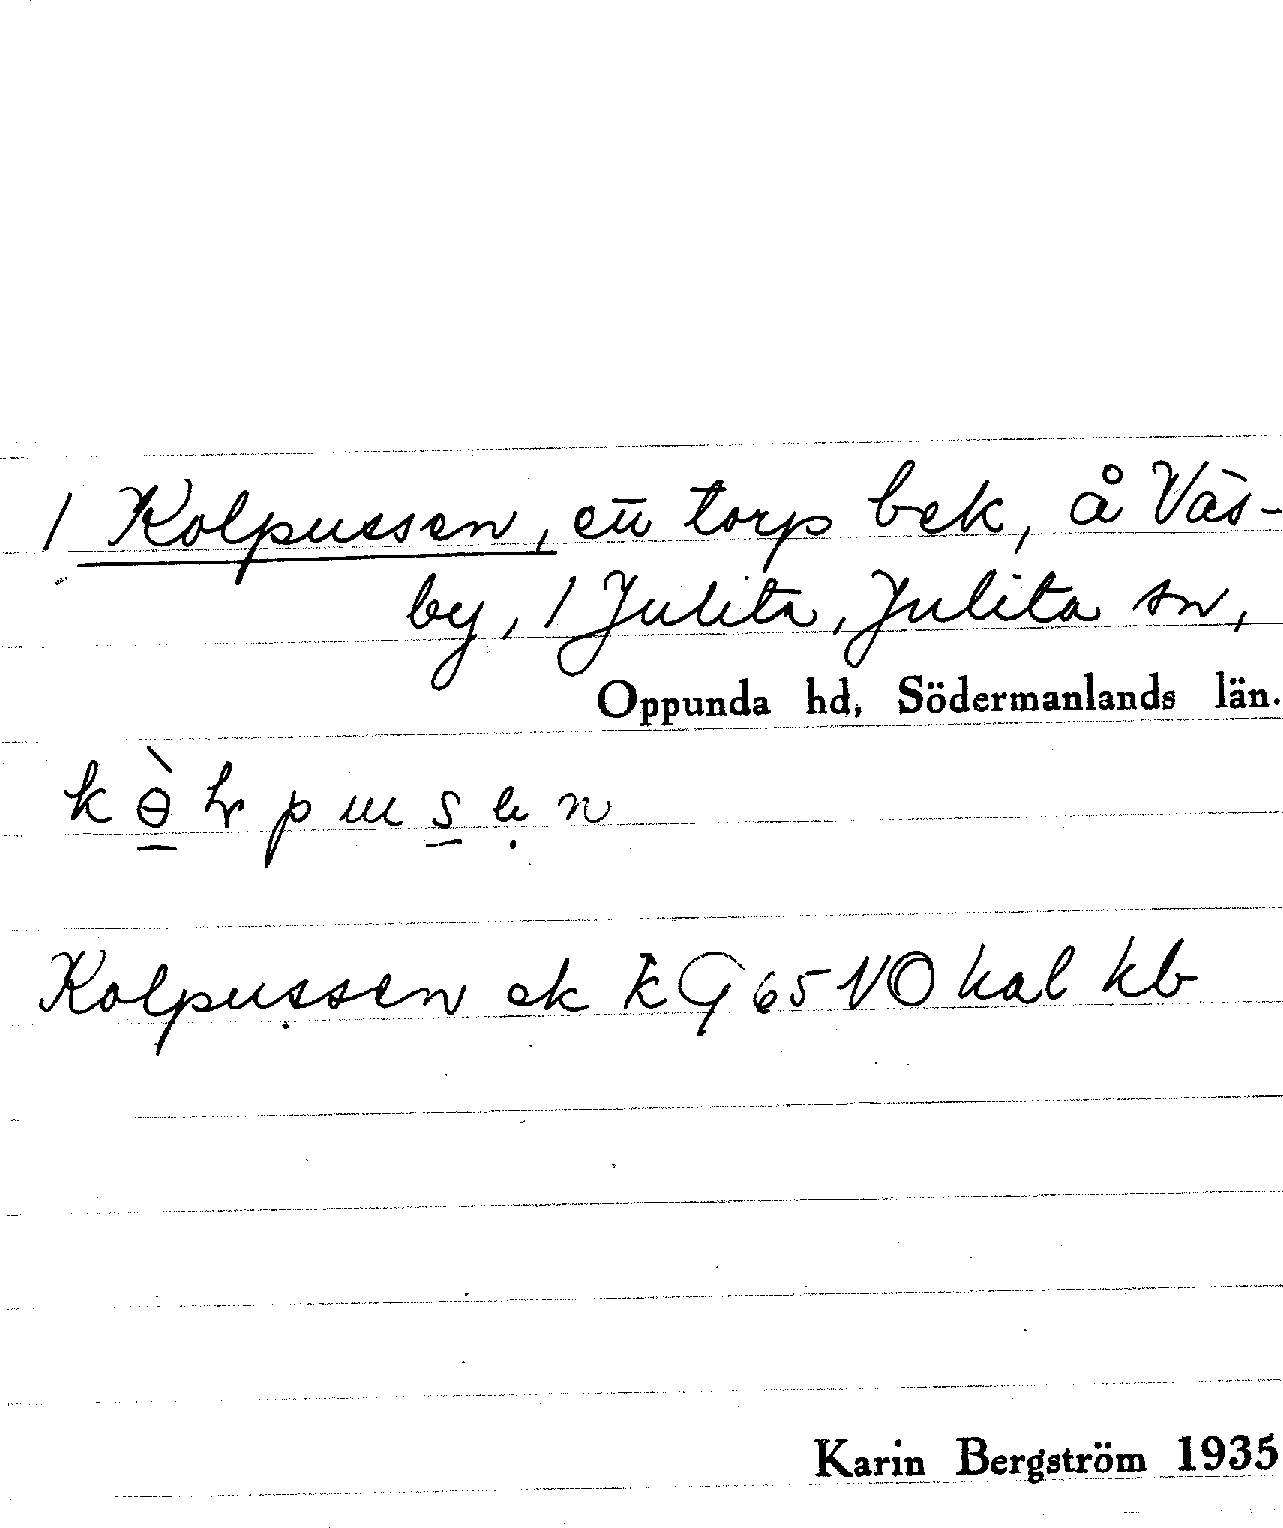 1 Kolpussen, ett torp bek, å Väs-
by, 1 Julita, Julita sn,
Oppunda hd, Södermanlands län.
Kolpussen ek k G 65 NO kal kb
Karin Bergström 1935